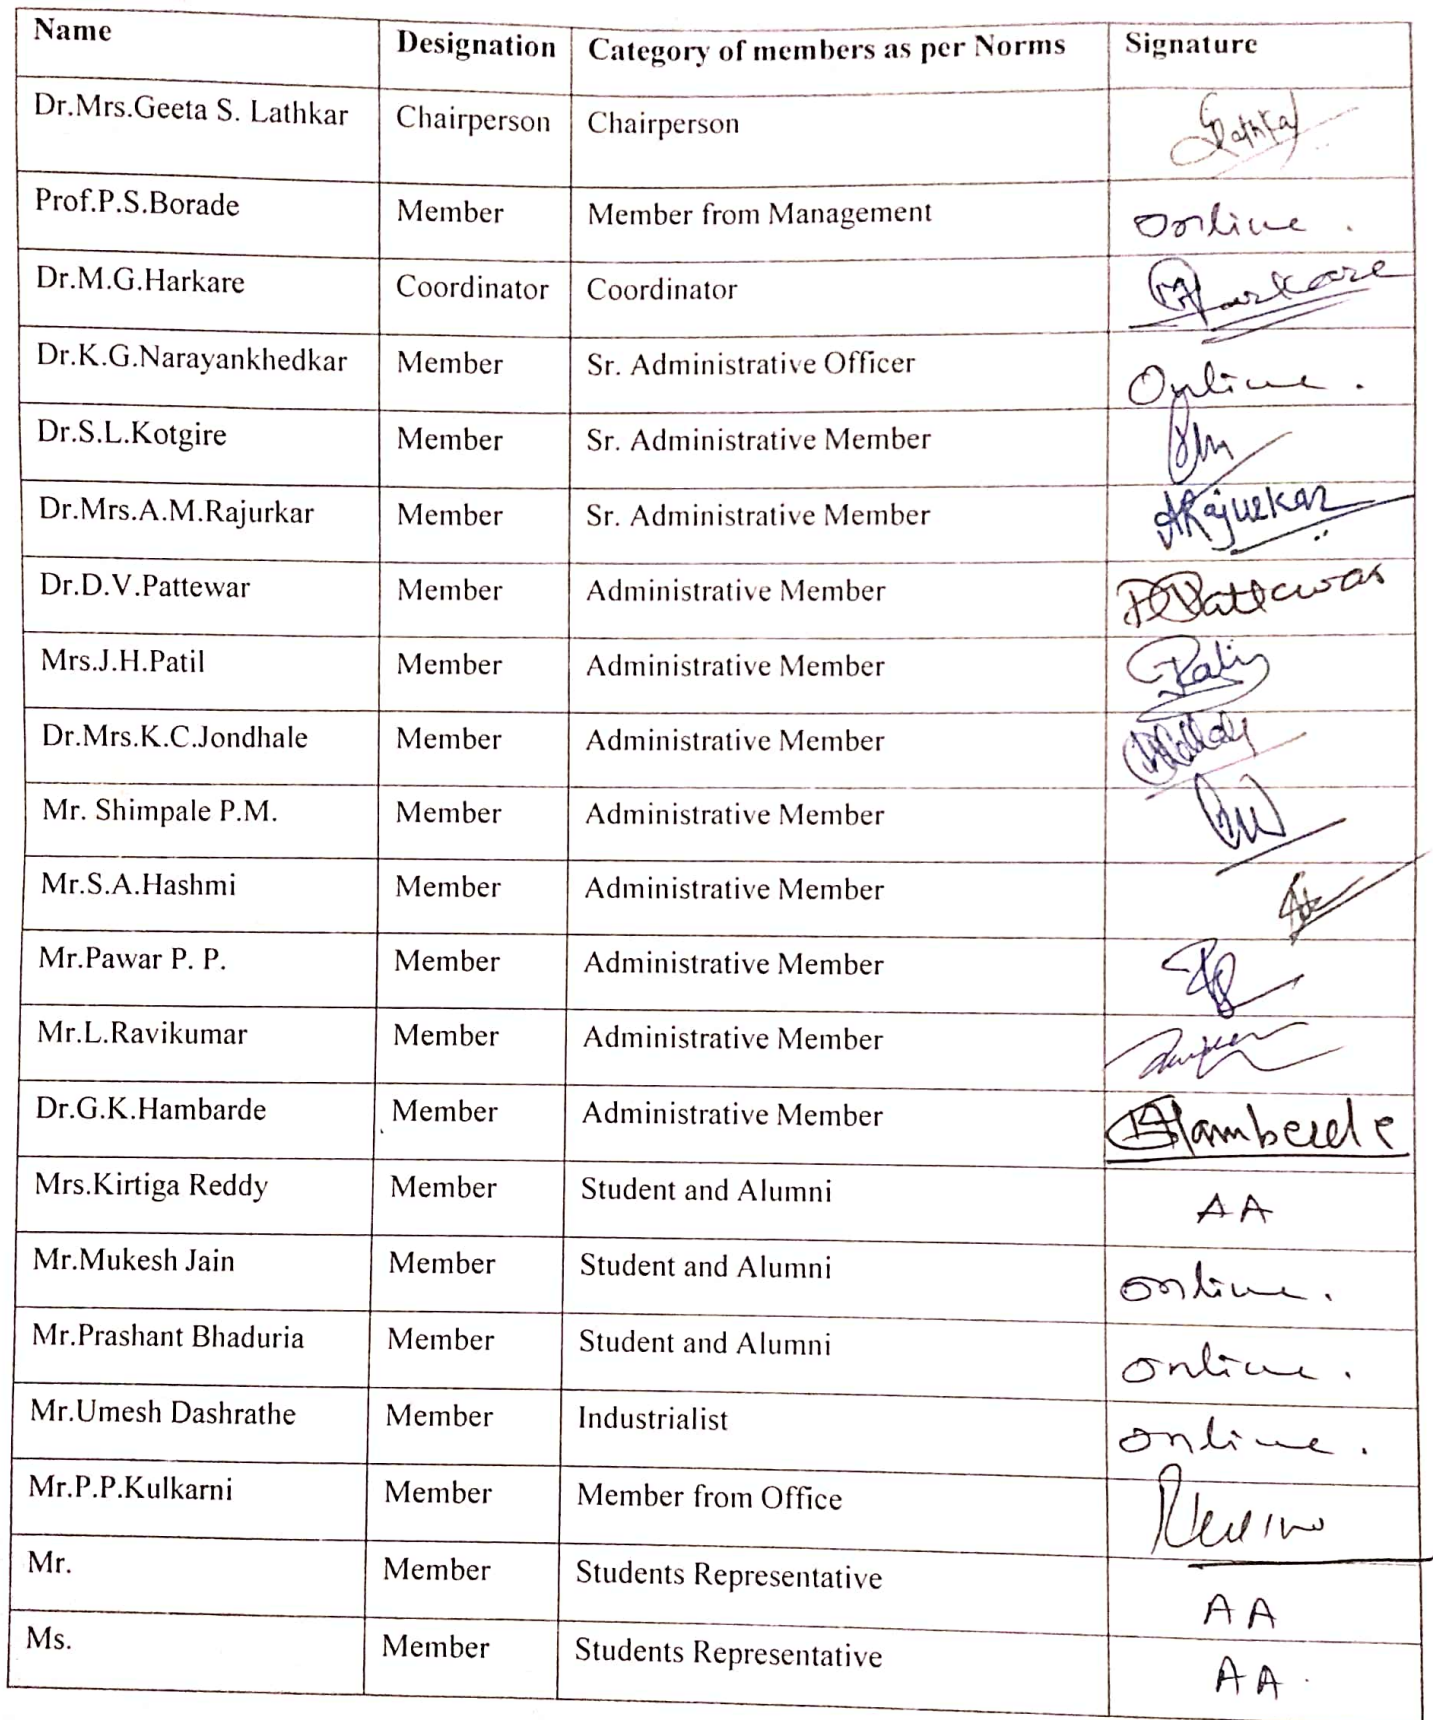 Name Designation Category of members as per Norms Signature
Dr.Mrs.Geeta S. Lathkar Chairperson Chairperson
Prof.P.S.Borade Member Member from Management Online .
Dr.M.G.Harkare Coordinator Coordinator Harkare
Dr.K.G.Narayankhedkar Member Sr. Administrative Officer Online .
Dr.S.L.Kotgire Member Sr. Administrative Member
Dr.Mrs.A.M.Rajurkar Member Sr. Administrative Member ARajurkar
Dr.D.V.Pattewar Member Administrative Member DVPattewar
Mrs.J.H.Patil Member Administrative Member
Dr.Mrs.K.C.Jondhale Member Administrative Member
Mr. Shimpale P.M. Member Administrative Member
Mr.S.A.Hashmi Member Administrative Member
Mr.Pawar P. P. Member Administrative Member
Mr.L.Ravikumar Member Administrative Member
Dr.G.K.Hambarde Member Administrative Member
Mrs.Kirtiga Reddy Member Student and Alumni AA
Mr.Mukesh Jain Member Student and Alumni online .
Mr.Prashant Bhaduria Member Student and Alumni online .
Mr.Umesh Dashrathe Member Industrialist online .
Mr.P.P.Kulkarni Member Member from Office
Mr. Member Students Representative AA
Ms. Member Students Representative AA .